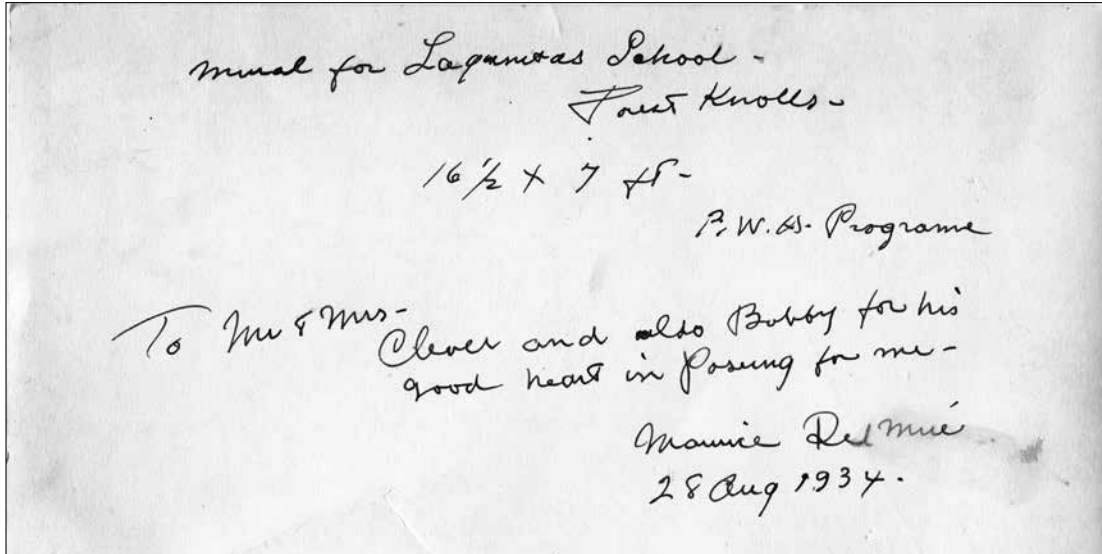 Mural for Lagunitas School -
Forest Knolls -
16 1/2 X 7 ft -
P.W.A. Programe
To Mr & Mrs -
Clever and also Bobby for his
good heart in Posing for me -
Maurice Del Mué
28 Aug 1934.